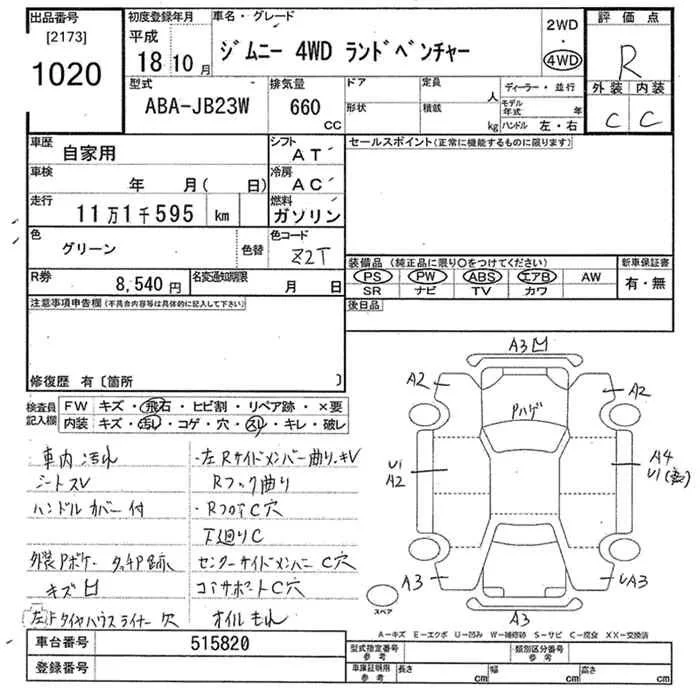 出品番号
[2173]
1020
初度登録年月
平成
18 10 月
車名・グレード
ジムニー 4WD ランドベンチャー
2WD
・
4WD
評価点
R
外装 内装
C C
型式
ABA-JB23W
排気量
660
CC
ドア
形状
定員
人
積載
kg
ディーラー・並行
モデル年式 年
ハンドル 左・右
車歴
自家用
シフト
AT
車検
年 月( 日)
冷房
AC
走行
11万1千595 km
燃料
ガソリン
色
グリーン
色替
色コード
Z2T
R券
8,540円
名変通知期限
月 日
セールスポイント(正常に機能するものに限ります)
装備品(純正品に限り○をつけてください)
PS PW ABS エアB AW
SR ナビ TV カワ
新車保証書
有・無
後日品
注意事項申告欄(不具合内容等は具体的に記入して下さい)
修復歴 有〔箇所 〕
検査員記入欄
FW キズ・飛石・ヒビ割・リペア跡・×要
内装 キズ・汚れ・コゲ・穴・スレ・キレ・破レ
車内汚れ
シートスV
ハンドルカバー付
外装Pボケ タッチP跡
キズ凹
左F タイヤハウスライナー 穴
・左Rサイドメンバー曲り、キV
Rフック曲り
・RフロアC穴
下廻りC
センターサイドメンバーC穴
コアサポートC穴
オイルもれ
A3凹
A2
A2
Pハゲ
U1
A2
A4
U1
A3
UA3
A3
スペア
A－キズ E－エクボ U－凹み W－補修跡 S－サビ C－腐食 XX－交換済
車台番号
515820
登録番号
型式指定番号
参考
類別区分番号
参考
車庫証明用
参考
長さ cm
幅 cm
高さ cm